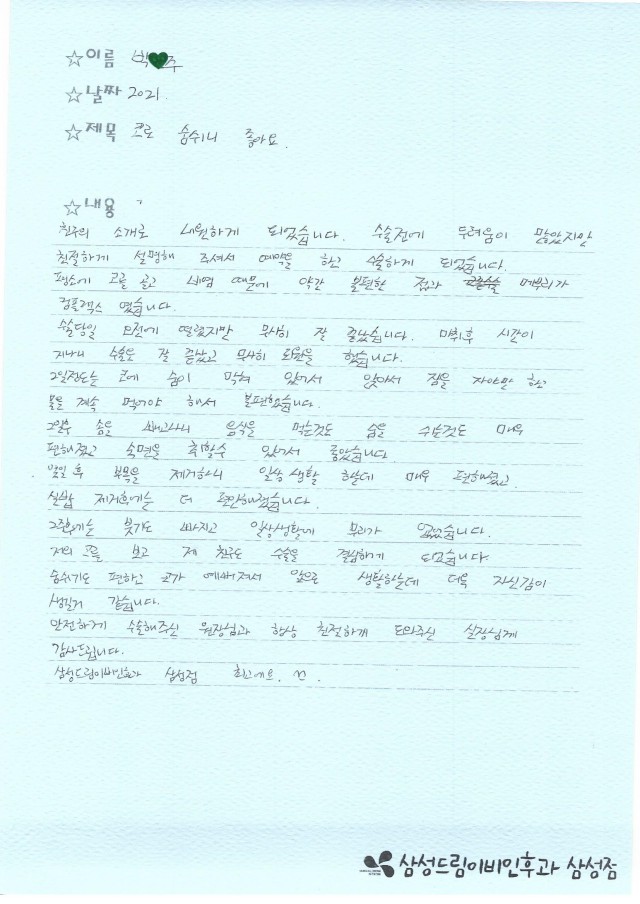 ☆이름 박♥주
☆날짜 2021.
☆제목 코로 숨쉬니 좋아요.
☆내용
친구의 소개로 내원하게 되었습니다. 수술전에 두려움이 많았지만
친절하게 설명해 주셔서 예약을 하고 수술하게 되었습니다.
평소에 코를 골고 비염 때문에 약간 불편한 점과 메부리가
컴플렉스 였습니다.
수술당일 오전에 떨렸지만 무사히 잘 끝났습니다. 마취후 시간이
지나니 수술도 잘 끝났고 무사히 퇴원을 했습니다.
2일정도는 코에 솜이 막혀 있어서 앉아서 잠을 자야만 하고
물을 계속 먹어야 해서 불편했습니다.
2일후 솜을 빼고나니 음식을 먹는것도 숨을 쉬는것도 매우
편해졌고 숙면을 취할수 있어서 좋았습니다
몇일 후 부목을 제거하니 일상 생활 하는데 매우 편해졌고
실밥 제거후에는 더 편안해졌습니다.
2주후에는 붓기도 빠지고 일상생활에 무리가 없었습니다.
저의 코를 보고 제 친구도 수술을 결심하게 되었습니다.
숨쉬기도 편하고 코가 예뻐져서 앞으로 생활하는데 더욱 자신감이
생길거 같습니다.
안전하게 수술해주신 원장님과 항상 친절하게 도와주신 실장님께
감사드립니다.
삼성드림이비인후과 삼성점 최고에요. ^^.
삼성드림이비인후과 삼성점